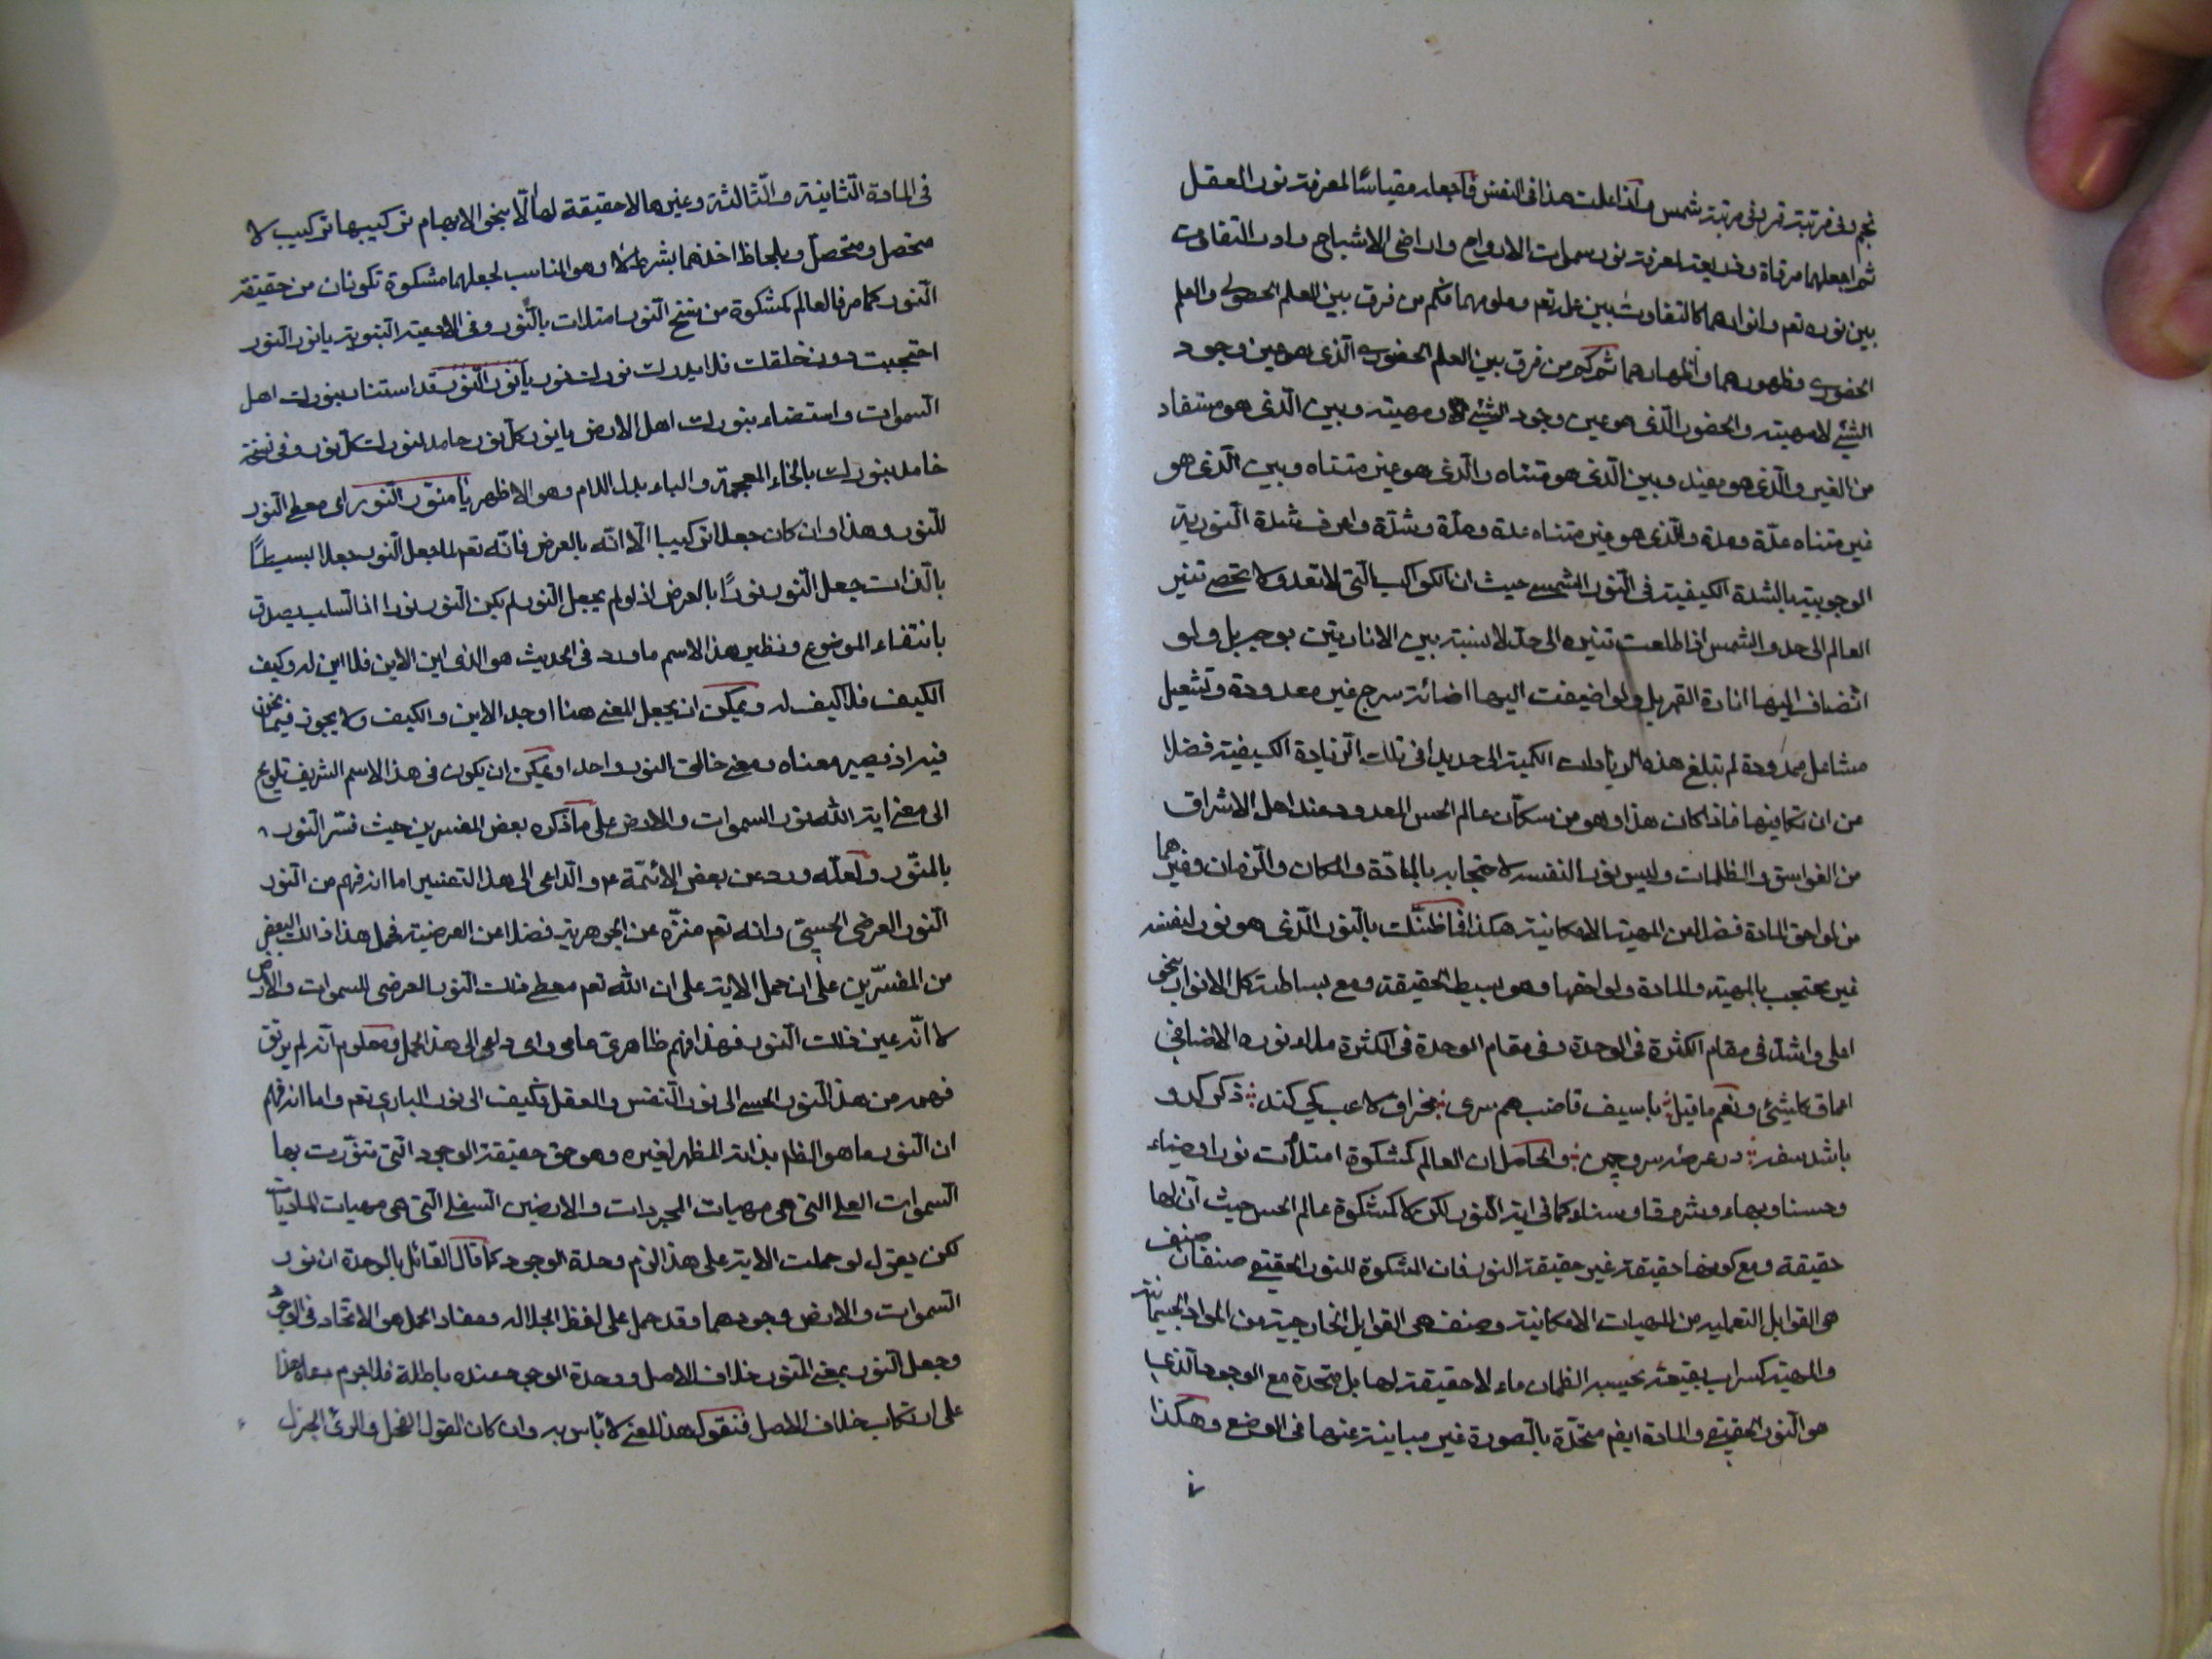 نجم وفى مرتبة قمر وفى مرتبة شمس واذا علمت هذا فى النفس فاجعله مقياسًا لمعرفة نور العقل
ثم اجعلهما مرقاة وذريعة لمعرفة نور سموات الارواح واراضى الاشباح واون التفاوت
بين نوره تعم وانوارهما كالتفاوت بين علمه تعم وعلومهما فكم من فرق بين العلم الحصولى والعلم
الحضورى وظهورهما واظهارهما ثم كم من فرق بين العلم الحضورى الذى هو عين وجود
الشئ لا مهيته والحضور الذى هو عين وجود الشئ ومهيته وبين الذى هو مستفاد
من الغير والذى هو مفيد وبين الذى هو متناه والذى هو غير متناه وبين الذى هو
غير متناه عدّة ومدة والذى هو غير متناه عدة ومدّة وشدّة واعرف شدة النورية
الوجوبية بالشدة الكيفية فى النور الشمسى حيث ان الكواكب التى لا تعد ولا تحصى تنير
العالم الى حد والشمس اذا طلعت تنيره الى حدّ لا نسبة بين الانارتين بوجه بل ولو
انضاف اليها انارة القمر بل ولو اضيفت اليها اضائة سرج غير معدودة وتشعيل
مشاعل ممدودة لم تبلغ هذه الزيادات الكمية الى حد يدانى تلك الزيادة الكيفية فضلا
من ان تكافيها فاذا كان هذا وهو من سكّان عالم الحس المعدود عند اهل الاشراق
من الغواسق والظلمات وليس نورا لنفسه لاحتجابه بالمادّة والمكان والزمان وغيرهما
من لواحق المادة فضلا عن المهية الامكانية هكذا فما ظنّك بالنور الذى هو نور لنفسه
غير محتجب بالمهية والمادة ولواحقها وهو بسيط الحقيقة ومع بساطته كل الانوار بنحو
اعلى واشد فى مقام الكثرة فى الوحدة وفى مقام الوحدة فى الكثرة ملاء نوره الاضافى
اعماق كل شئ ونعم ما قيل با سيف قاضب هم سرى مخراق لاعب كى كند ذكر كدو
باشد سفه در عرضه سرو چمن والحاصل ان العالم كمشكوة امتلأت نورا وضياء
وحسنا وبهاء وشرقا وسناء كما فى اية النور لكن لا كمشكوة عالم الحس حيث ان لها
حقيقة ومع كونها حقيقة غير حقيقة النور فان المشكوة للنور الحقيقى صنفان صنف
هى القوابل التعملية من المهيات الامكانية وصنف هى القوابل الخارجية من المواد الجسمانية
والمهية كسراب بقيعة يحسبه الظمان ماء لا حقيقة لها بل متحدة مع الوجود الذى
هو النور الحقيقى والمادة ايضم متحدة بالصورة غير مباينة عنها فى الوضع وهكذا
فى المادة الثانية والثالثة وغيرهما لا حقيقة لها الّا بنحو الابهام تركيبها تركيب لا
متحصل ومتحصّل وبلحاظ اخذهما بشرط لا وهو المناسب لجعلهما مشكوة تكونان من حقيقة
النور كما مر فالعالم كمشكوة من سنخ النور امتلأت بالنور وفى الادعية النبوية يا نور النور
احتجبت دون خلقك فلا يدرك نورك نور يا نور النور قد استنار بنورك اهل
السموات واستضاء بنورك اهل الارض يا نور كل نور حامد لنورك كل نور وفى نسخة
خامد بنورك بالخاء المعجمة والباء بدل اللام وهو الاظهر يا منوّر النور اى معطى النور
للنور وهذا وان كان جعلا تركيبيا الّا انّه بالعرض فانّه تعم لما جعل النور جعلا بسيطًا
بالذات جعل النور نورًا بالعرض اذ لو لم يجعل النور لم يكن النور نورا اذ السلب يصدق
بانتفاء الموضوع ونظير هذا الاسم ما ورد فى الحديث هو الذى اين الاين فلا اين له وكيف
الكيف فلا كيف له ويمكن ان يجعل المعنى هنا اوجد الاين والكيف ولا يجوز فيما نحن
فيه اذ يصير معناه ومعنى خالق النور واحدا ويمكن ان يكون فى هذا الاسم الشريف تلويح
الى معنى اية الله نور السموات والارض على ما ذكره بعض المفسرين حيث فسّر النور
بالمنوّر ولعلّه ورد عن بعض الائمّة ع والداعى الى هذا التفسير اما انه فهم من النور
النور العرضى الحسّى وانه تعم منزّه عن الجوهرية فضلا عن العرضية فحمل هذا ذالك البعض
من المفسّرين على ان حمل الاية على ان الله تعم معطى ذلك النور العرضى للسموات والارض
لا انّه عين ذلك النور فهذا فهم ظاهرىّ عامى واى داعى الى هذا الحمل ومعلوم انّه لم يرتق
فهمه من هذا النور الحسى الى نور النفس والعقل فكيف الى نور البارى تعم واما انه فهم
ان النور ما هو الظاهر بذاته المظهر لغيره وهو حق حقيقة الوجود التى تنوّرت بها
السموات العلى التى هى مهيات المجردات والارضين السفلى التى هى مهيات الماديات
لكن يقول لو حملت الاية على هذا لزم وحدة الوجود كما قال القائل بالوحدة ان نور
السموات والارض وجودهما وقد حمل على لفظ الجلالة ومفاد الحمل هو الاتحاد فى الوجود
وجعل النور بمعنى المنور خلاف الاصل ووحدة الوجود عنده باطلة فلا جرم دعاه هذا
على ارتكاب خلاف الاصل فنقول هذا المعنى لا بأس به وان كان القول الفحل والرأى الجزل